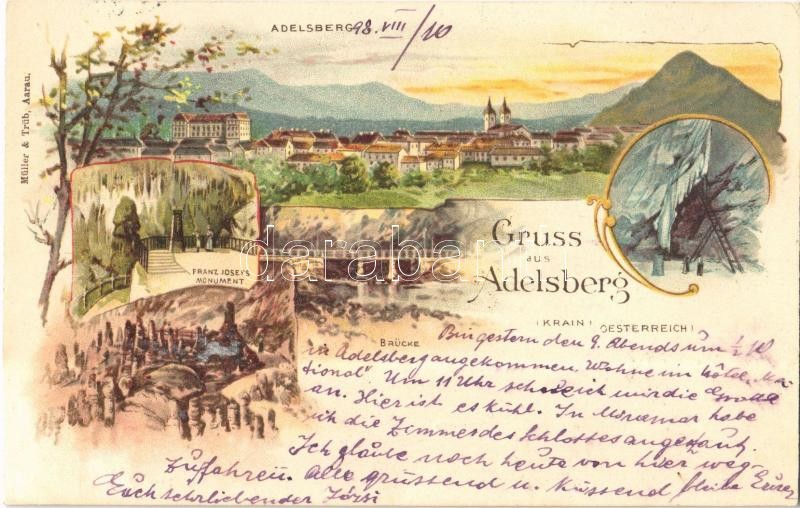 ADELSBERG 98 VIII/10
Müller & Trüb, Aarau.
FRANZ JOSEF'S
MONUMENT
Gruss
aus
Adelsberg
(KRAIN) OESTERREICH)
BRÜCKE
darabanth.com
Bin gestern den 9. Abends um ½ 10
in Adelsberg angekommen. Wohne im Hôtel „Na-
tional". Um 11 Uhr seh ich mir die Grotte
an. Hier ist es kühl. In Miramar habe
ich die Zimmer des Schlosses angeschaut.
Ich glaube noch heute von hier weg-
zufahren. Alle grüssend u. küssend bleibe Euer
Euch sehr liebender